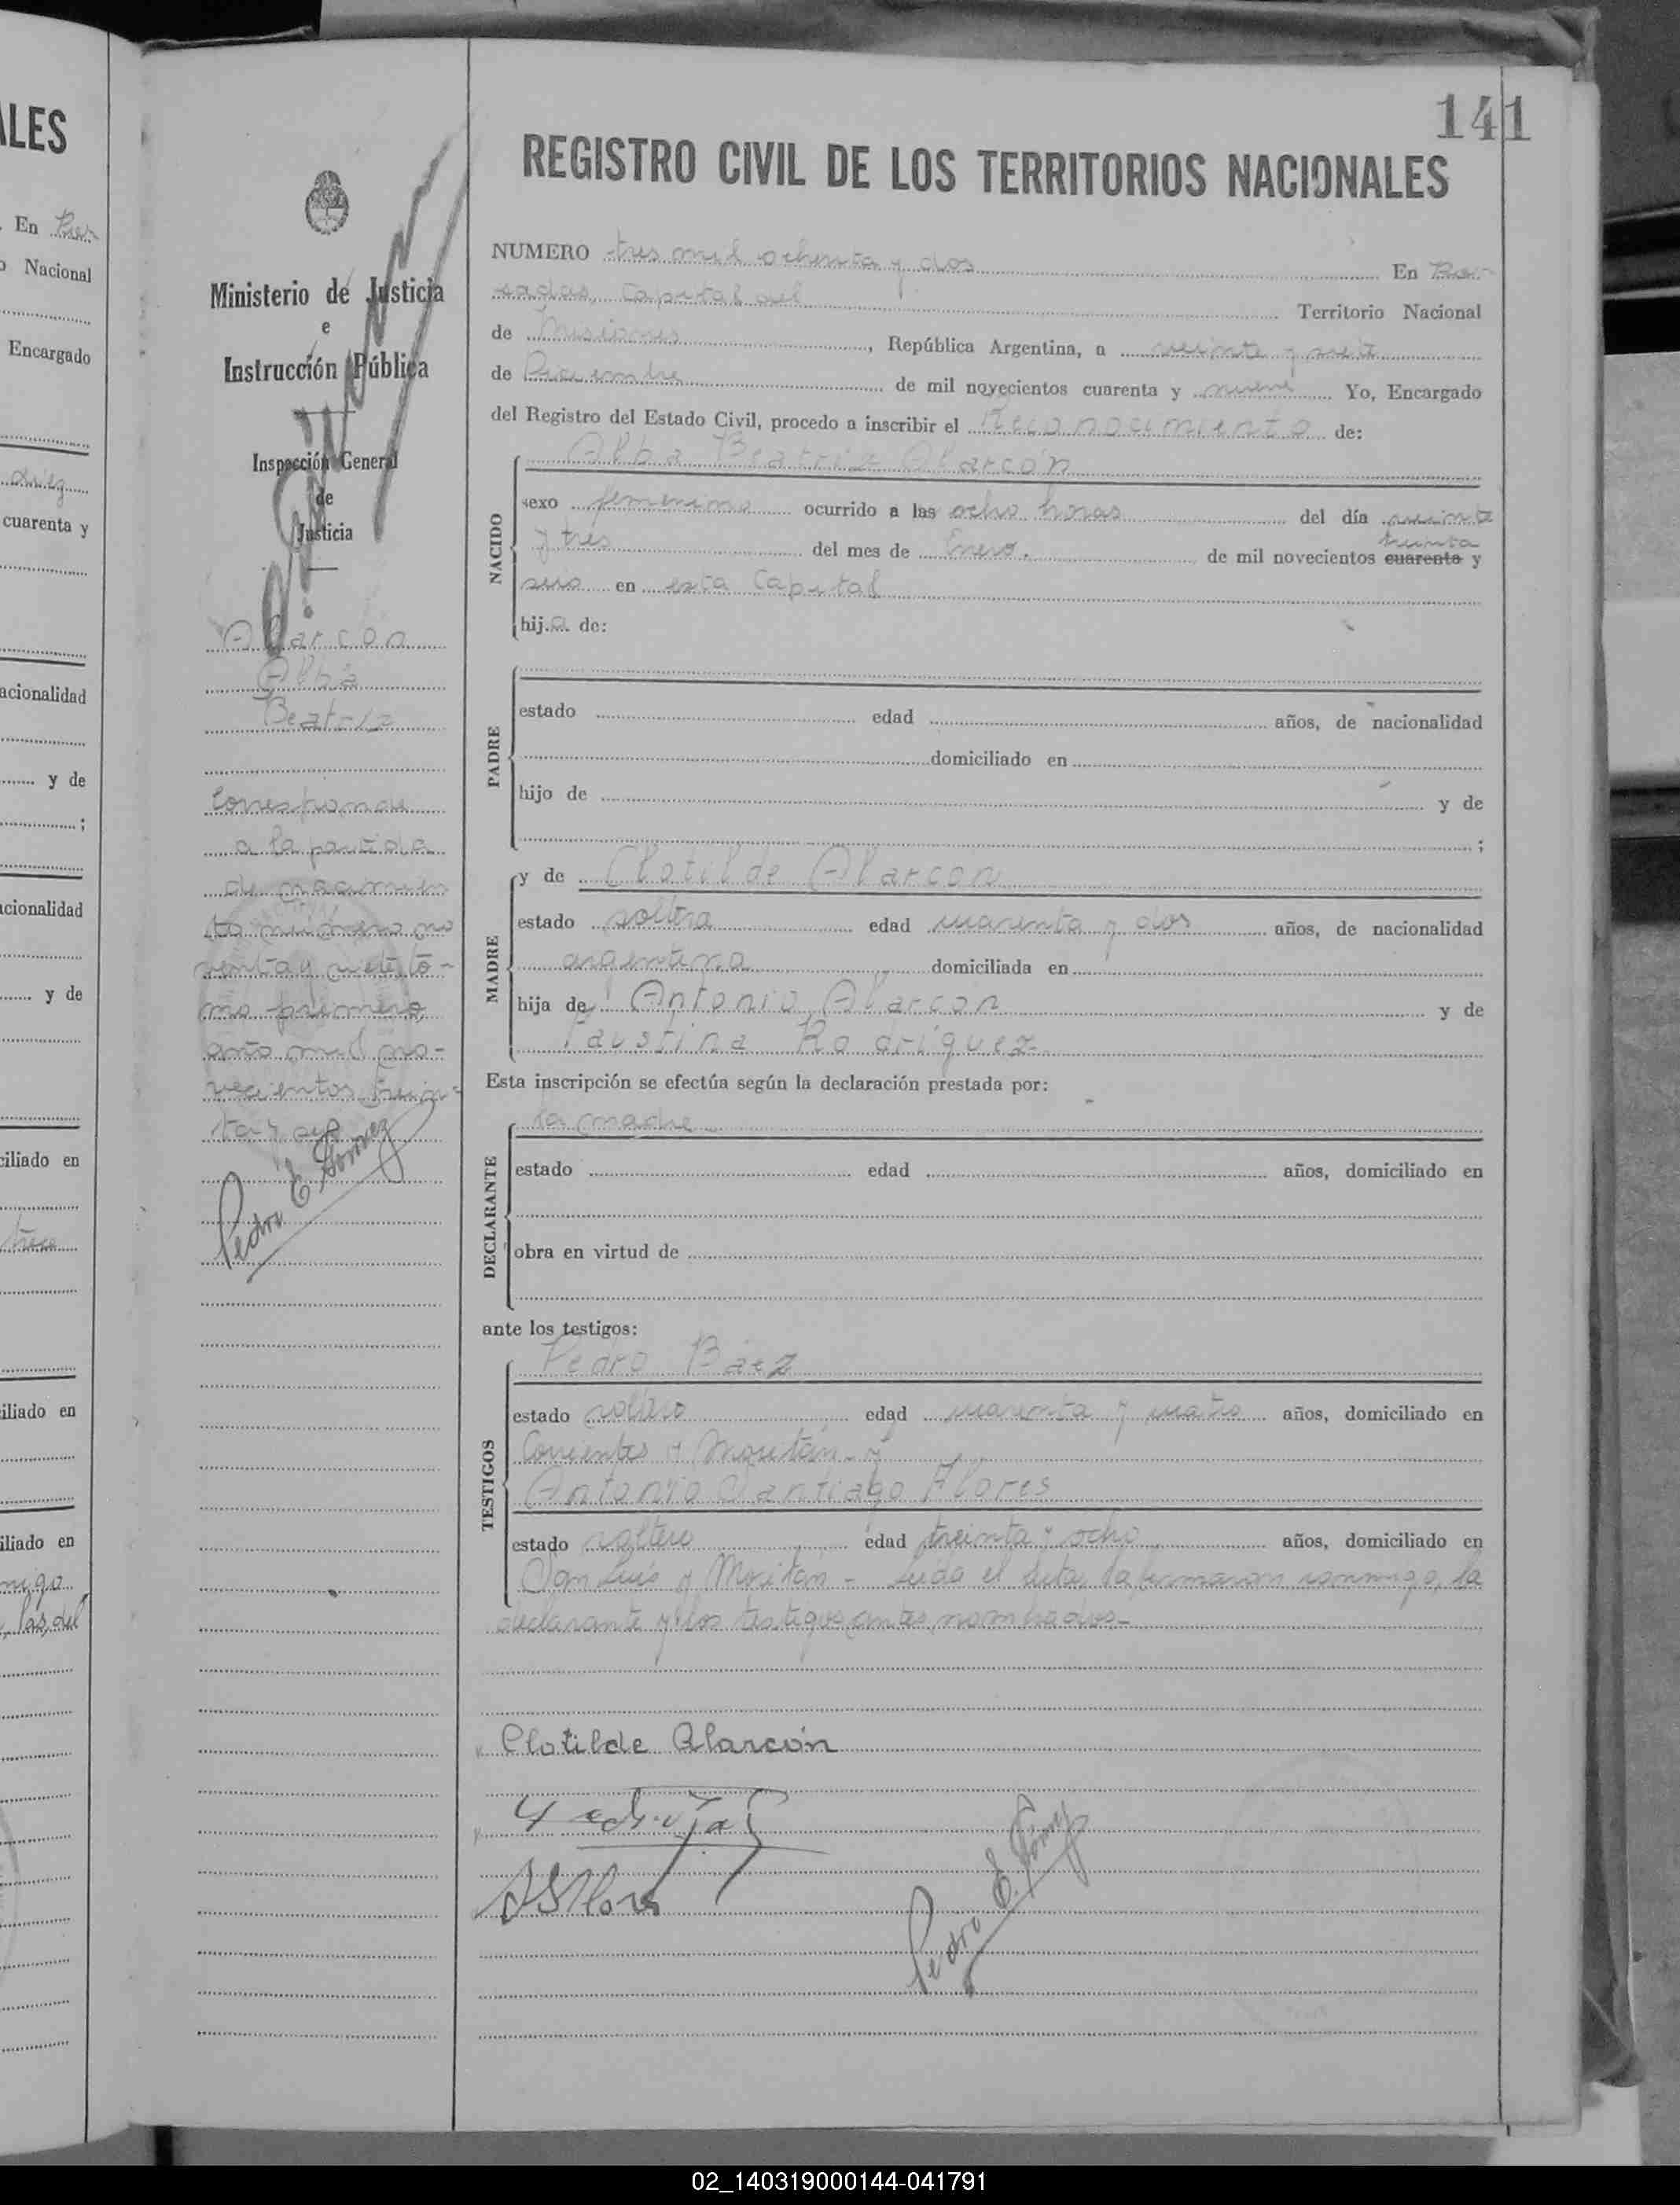 141
REGISTRO CIVIL DE LOS TERRITORIOS NACIONALES
NUMERO tres mil ochenta y dos En Po-
sadas, Capital del Territorio Nacional
de Misiones, República Argentina, a veinte y siete
de Diciembre de mil novecientos cuarenta y nueve Yo, Encargado
del Registro del Estado Civil, procedo a inscribir el Reconocimiento de:
Alba Beatriz Alarcón
NACIDO
sexo femenino ocurrido a las ocho horas del día veinte
y tres del mes de Enero. de mil novecientos cuarenta treinta y
seis en esta Capital
hija de:
PADRE
estado edad años, de nacionalidad
domiciliado en
hijo de y de
;
MADRE
y de Clotilde Alarcón
estado soltera edad cuarenta y dos años, de nacionalidad
argentina domiciliada en
hija de Antonio Alarcon y de
Faustina Rodriguez-
Esta inscripción se efectúa según la declaración prestada por:
DECLARANTE
la madre-
estado edad años, domiciliado en
obra en virtud de
ante los testigos:
TESTIGOS
Pedro Baez
estado soltero edad cuarenta y cuatro años, domiciliado en
Corrientes y Moritán- y
Antonio Santiago Flores
estado soltero edad treinta y ocho años, domiciliado en
San Luis y Moritán - Leída el Acta, la firmaron conmigo, la
declarante y los testigos antes nombrados-
Clotilde Alarcón
ASFlores
Pedro E. Gómez
Ministerio de Justicia
e
Instrucción Pública
Inspección General
de
Justicia
Alarcon
Alba
Beatriz
Corresponde
a la partida
de nacimien
to número no
venta y siete, to-
mo primero,
año mil no-
vecientos trein-
ta y seis
Pedro E Gómez
ALES
En Po-
o Nacional
Encargado
diez
cuarenta y
acionalidad
y de
;
acionalidad
y de
ciliado en
trece
iliado en
iliado en
migo
, las, del
02_140319000144-041791